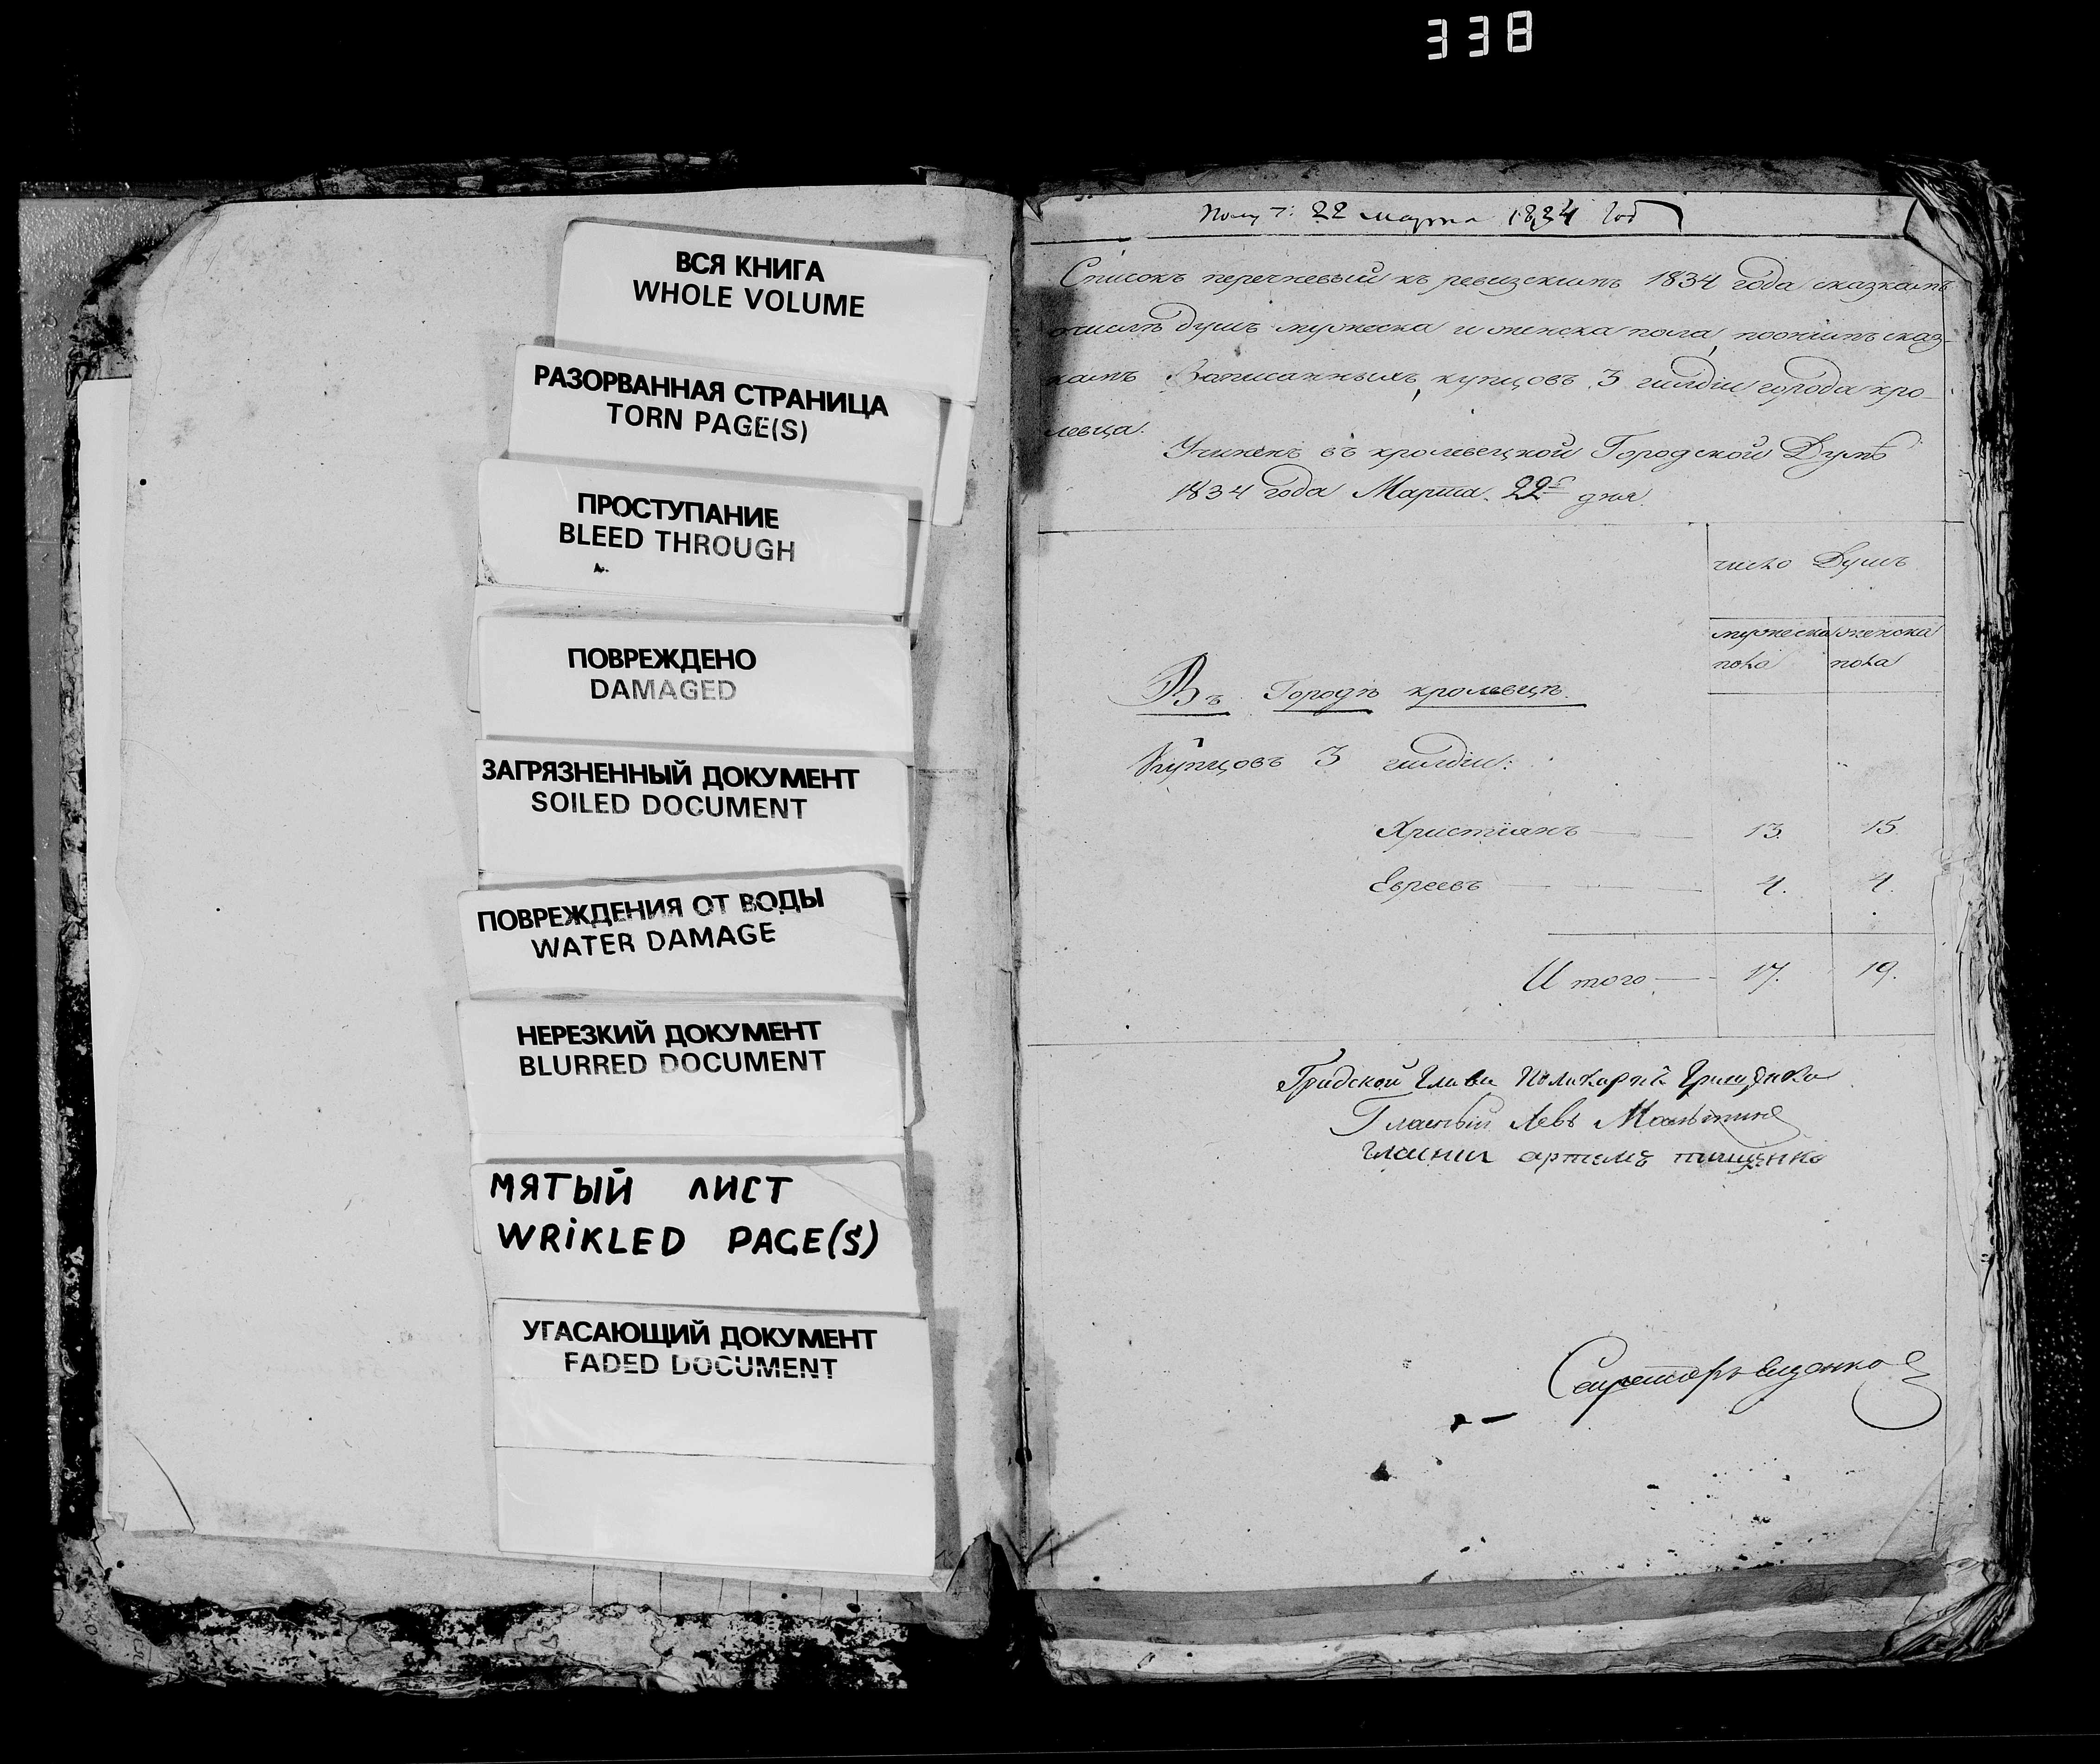 338
ВСЯ КНИГА
WHOLE VOLUME
РАЗОРВАННАЯ СТРАНИЦА
TORN PAGE(S)
ПРОСТУПАНИЕ
BLEED THROUGH
ПОВРЕЖДЕНО
DAMAGED
ЗАГРЯЗНЕННЫЙ ДОКУМЕНТ
SOILED DOCUMENT
ПОВРЕЖДЕНИЯ ОТ ВОДЫ
WATER DAMAGE
НЕРЕЗКИЙ ДОКУМЕНТ
BLURRED DOCUMENT
МЯТЫЙ ЛИСТ
WRiKLED PAGE(S)
УГАСАЮЩИЙ ДОКУМЕНТ
FADED DOCUMENT
22 марта 1834 
Списокъ перечневый къ ревизскимъ 1834 года сказкамъ
о числѣ душъ мужеска и женска пола, по онымъ сказ-
камъ Записанныхъ, купцовъ 3 гилдіи города кро-
левца.
Учиненъ въ кролевецкой Городской Думѣ
1834 года Марта 22 дня
число Душъ
мужеска женска
пола пола
Въ Городѣ кролевцѣ
Купцовъ 3 гилдіи:
Христіянъ — 13. 15.
Евреевъ — — — 4. 4.
Итого — 17. 19.
Градской Глава Поликарпъ
Гласный Левъ
артемъ тищенко
Секретарь